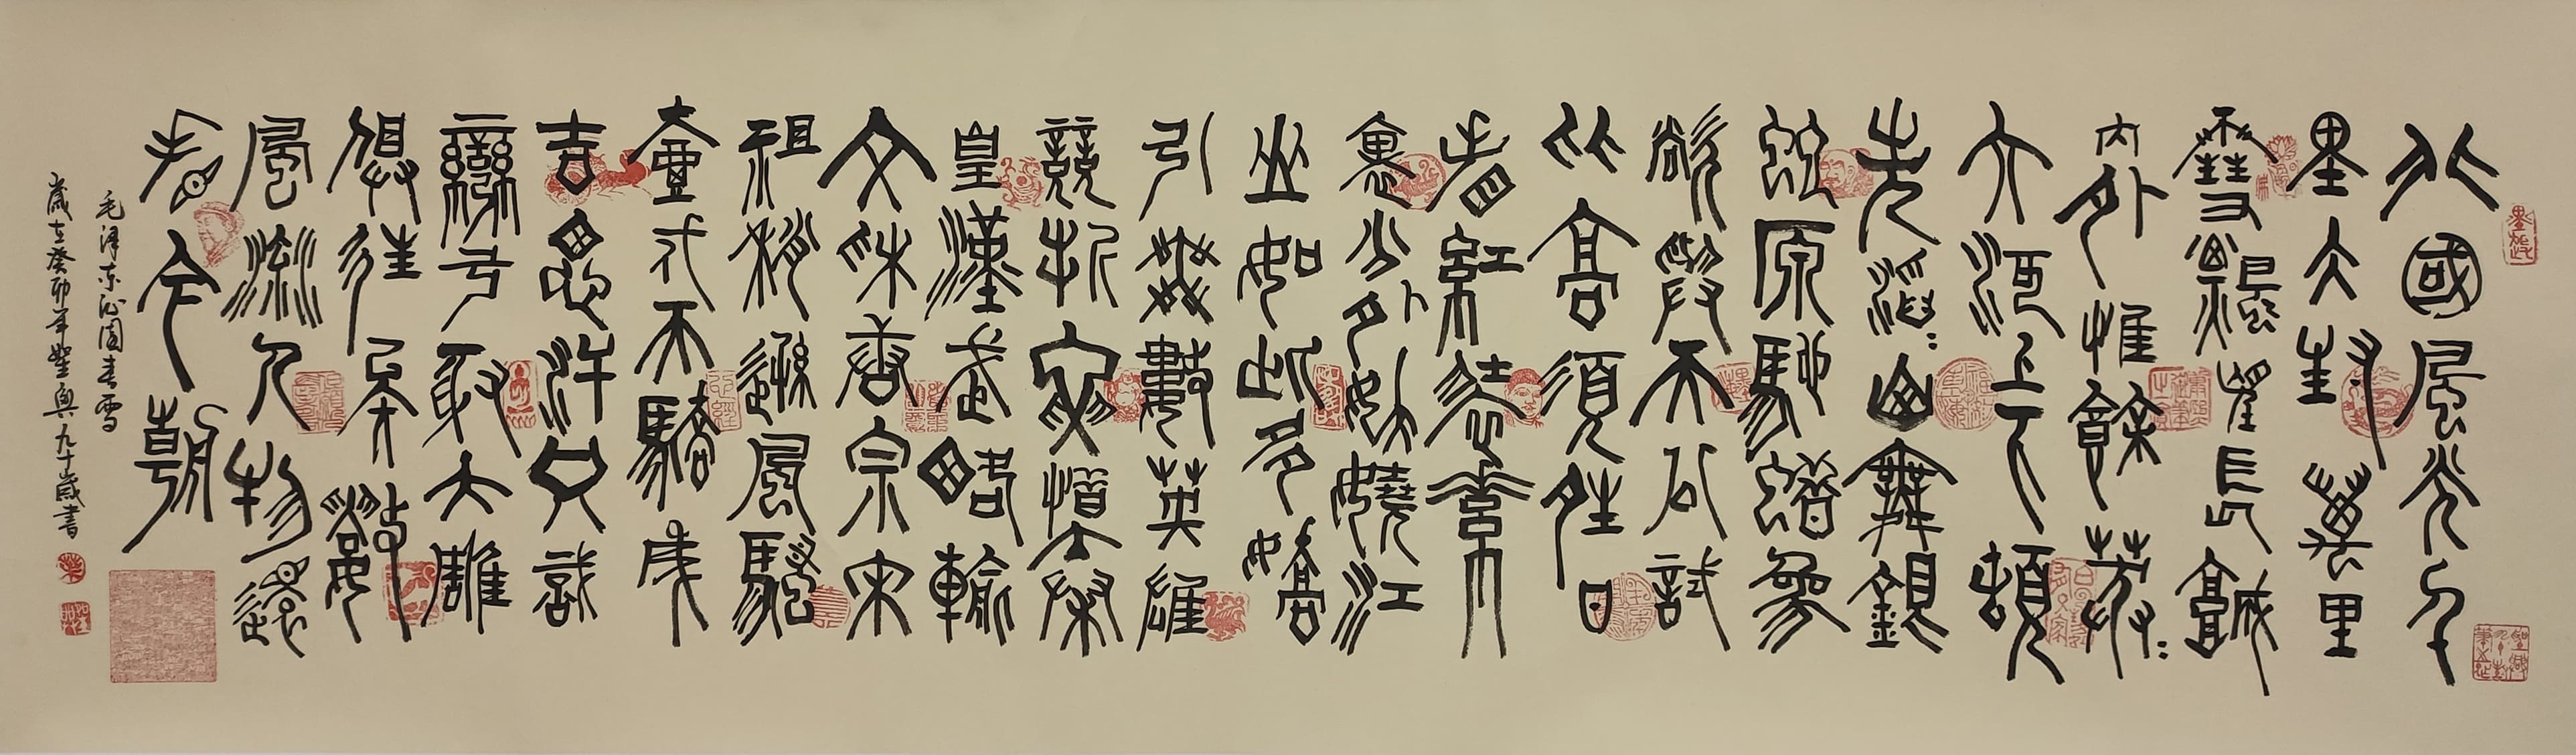 北國風光千
里冰封萬里
雪飄望長城
內外惟餘莽〻
大河上下頓
失滔〻山舞銀
蛇原馳蠟象
欲與天公試
比高須晴日
看紅裝素
裹分外妖嬈江
山如此多嬌
引無數英雄
競折腰惜秦
皇漢武略輸
文采唐宗宋
祖稍遜風騷
壹代天驕成
吉思汗只識
彎弓射大雕
俱往矣數
風流人物還
看今朝
毛澤東沁園春雪
歲在癸卯年 九十歲書